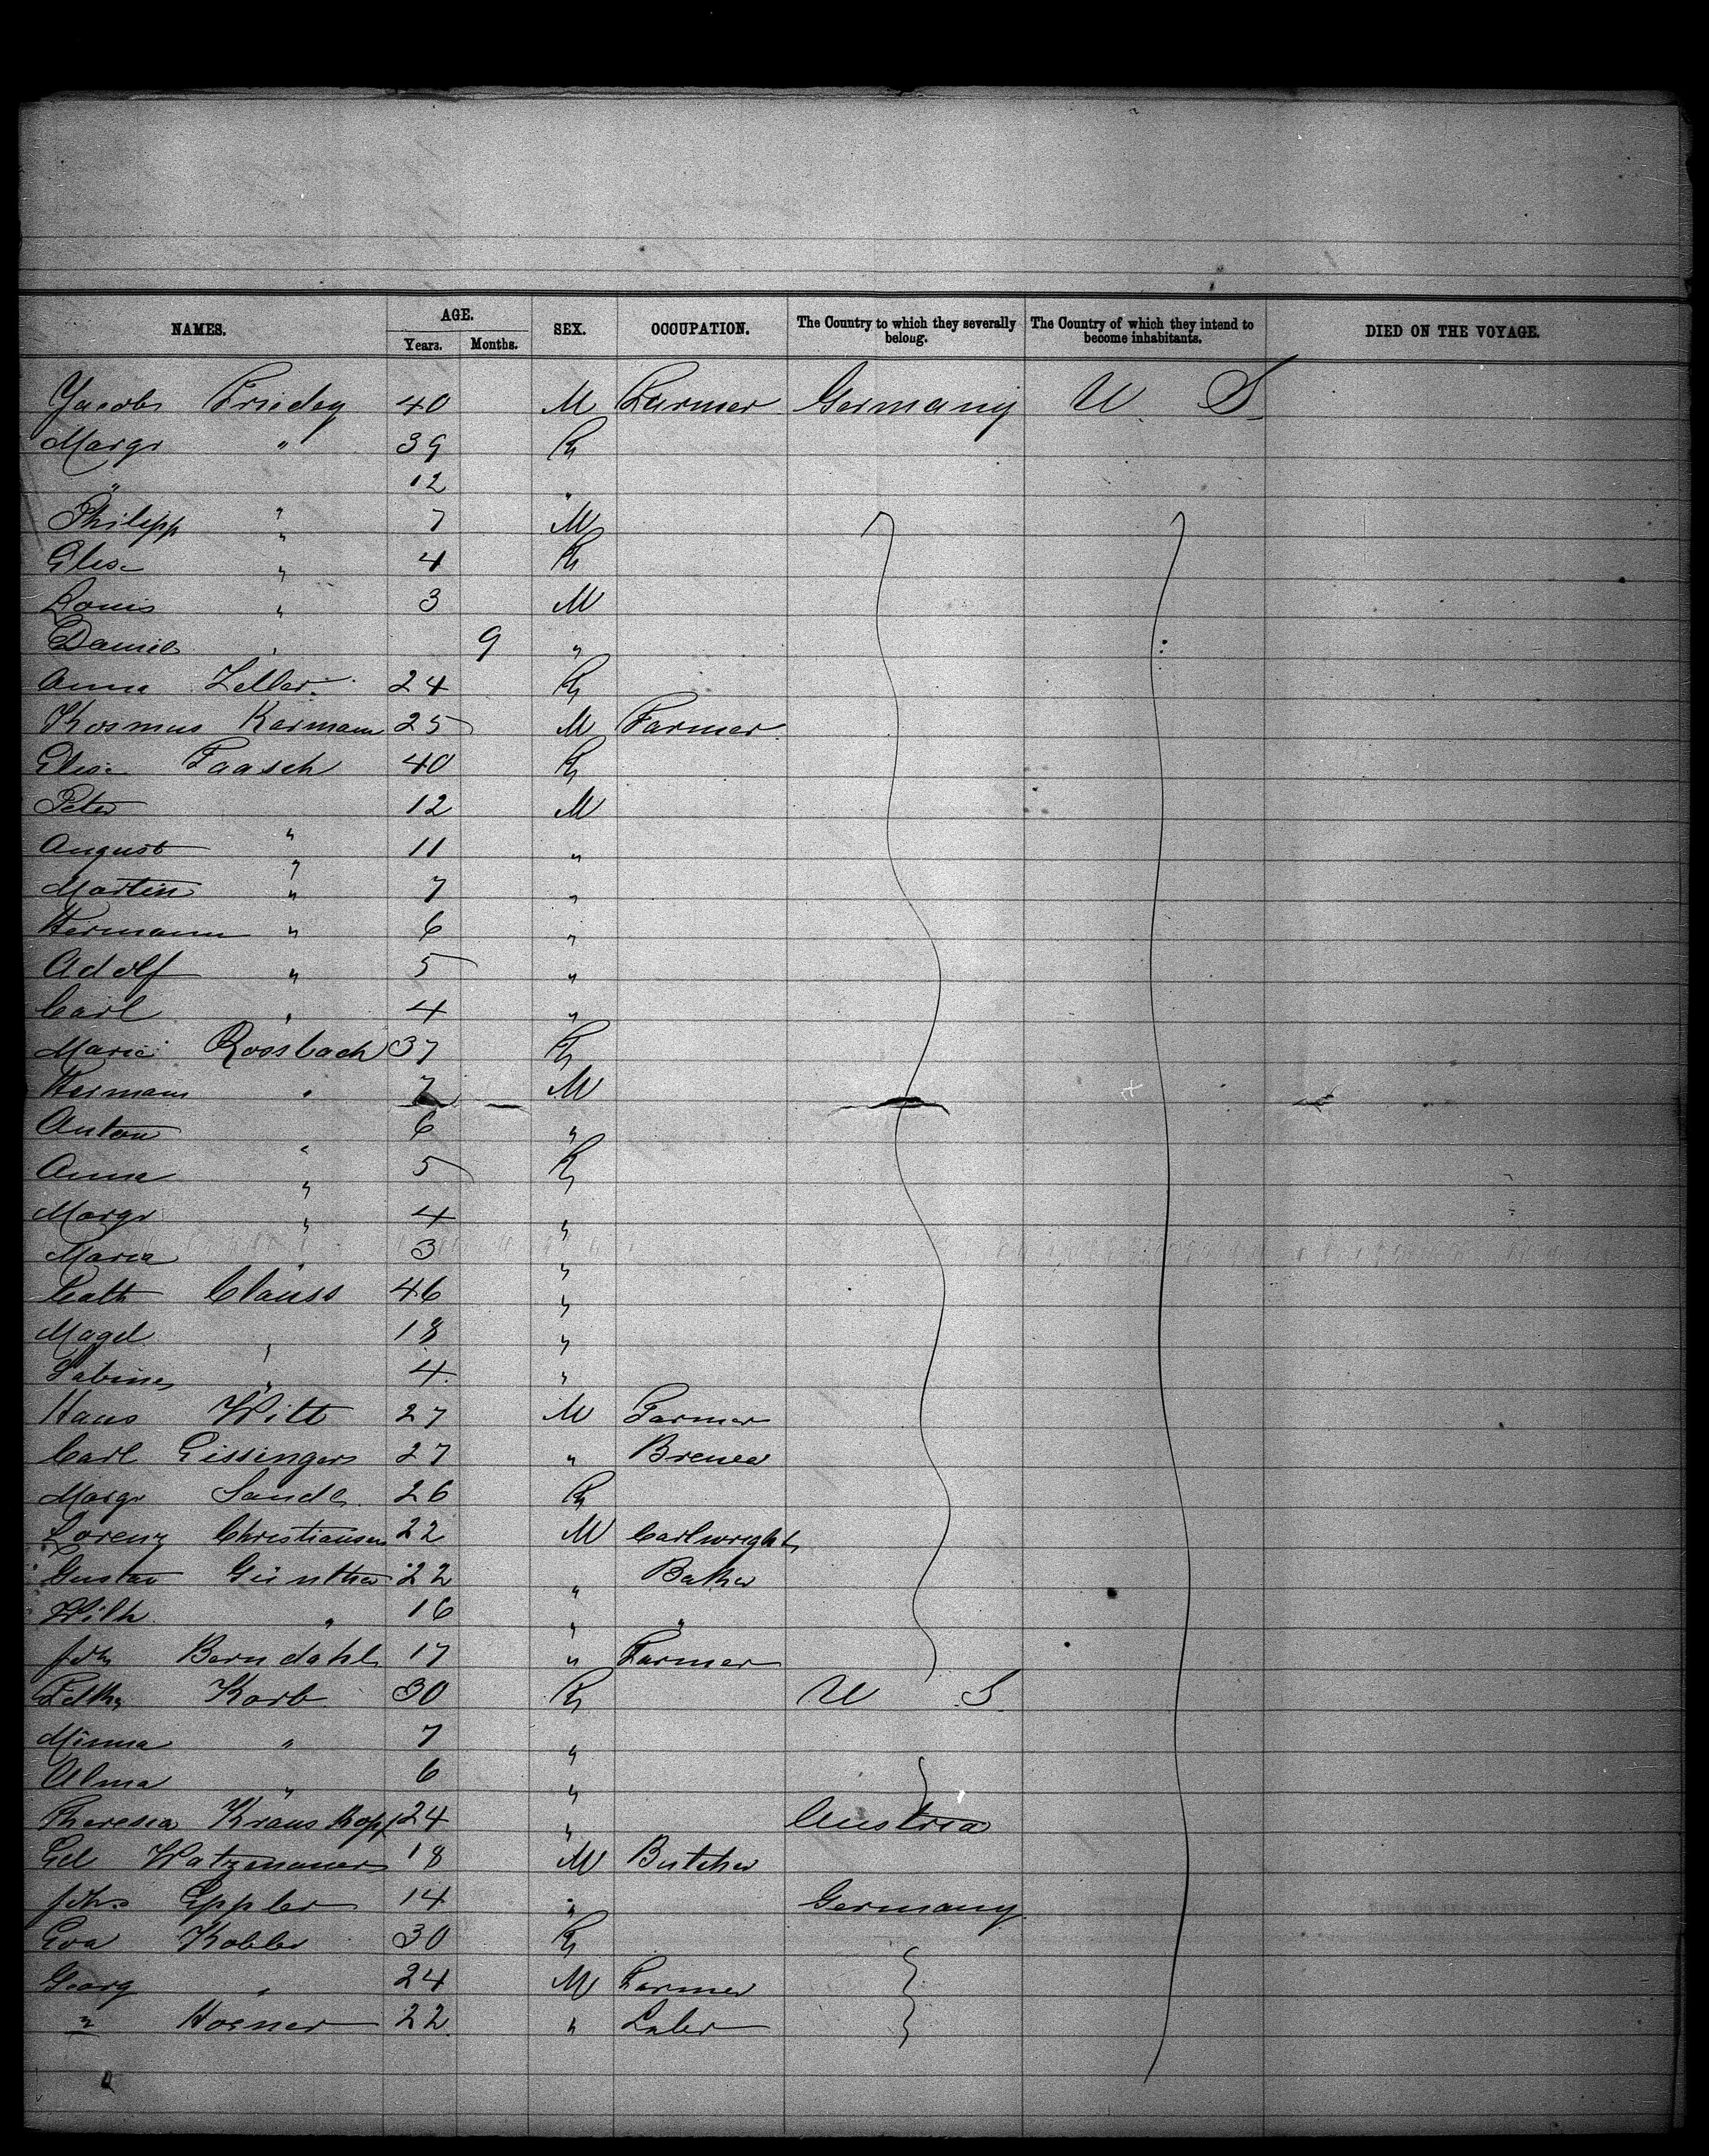 NAMES. AGE. SEX. OCCUPATION. The Country to which they severally belong. The Country of which they intend to become inhabitants. DIED ON THE VOYAGE.
Years. Months.
Jacob Friedey 40 M Farmer Germany U S
Margr " 39 F
" 12 "
Philipp " 7 M
Elise " 4 F
Louis " 3 M
Daniel " 9 "
Anna Zeller 24 F
Kosmus Karmann 25 M Farmer
Elise Faasch 40 F
Peter " 12 M
August " 11 "
Martin " 7 "
Hermann " 6 "
Adolf " 5 "
Carl " 4 "
Marie Rossbach 37 F
Hermann " 7 M
Anton " 6 "
Anna " 5 F
Margr " 4 "
Maria " 3 "
Cath Clauss 46 "
Magd " 18 "
Sabine " 4 "
Hans Witt 27 M Farmer
Carl Gissinger 27 " Brewer
Margr 26 F
Lorenz Christiansen 22 M Cartwright
Gustav Günther 22 " Baker
Wilh " 16 " "
Joh Berndahl 17 " Farmer
Korb 30 F U S
Minna " 7 "
Alma " 6 "
Theresia Kraushopf 24 " Austria
Watzenauer 18 M Butcher
Johs Eppler 14 " Germany
Eva Kobler 30 F
Georg " 24 M Farmer
" Horner 22 " Labr